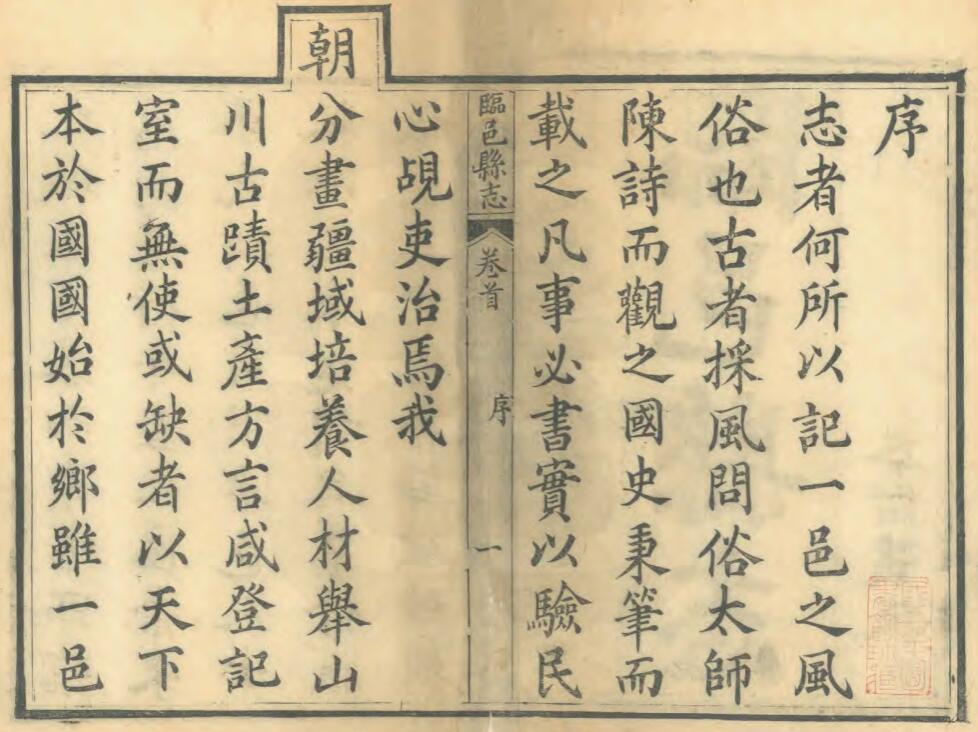 序
志者何所以記一邑之風
俗也古者採風問俗太師
陳詩而觀之國史秉筆而
載之凡事必書實以驗民
臨邑縣志 卷首 序 一
心覘吏治焉我
朝
分畫疆域培養人材舉山
川古蹟土產方言咸登記
室而無使或缺者以天下
本於國國始於鄉雖一邑